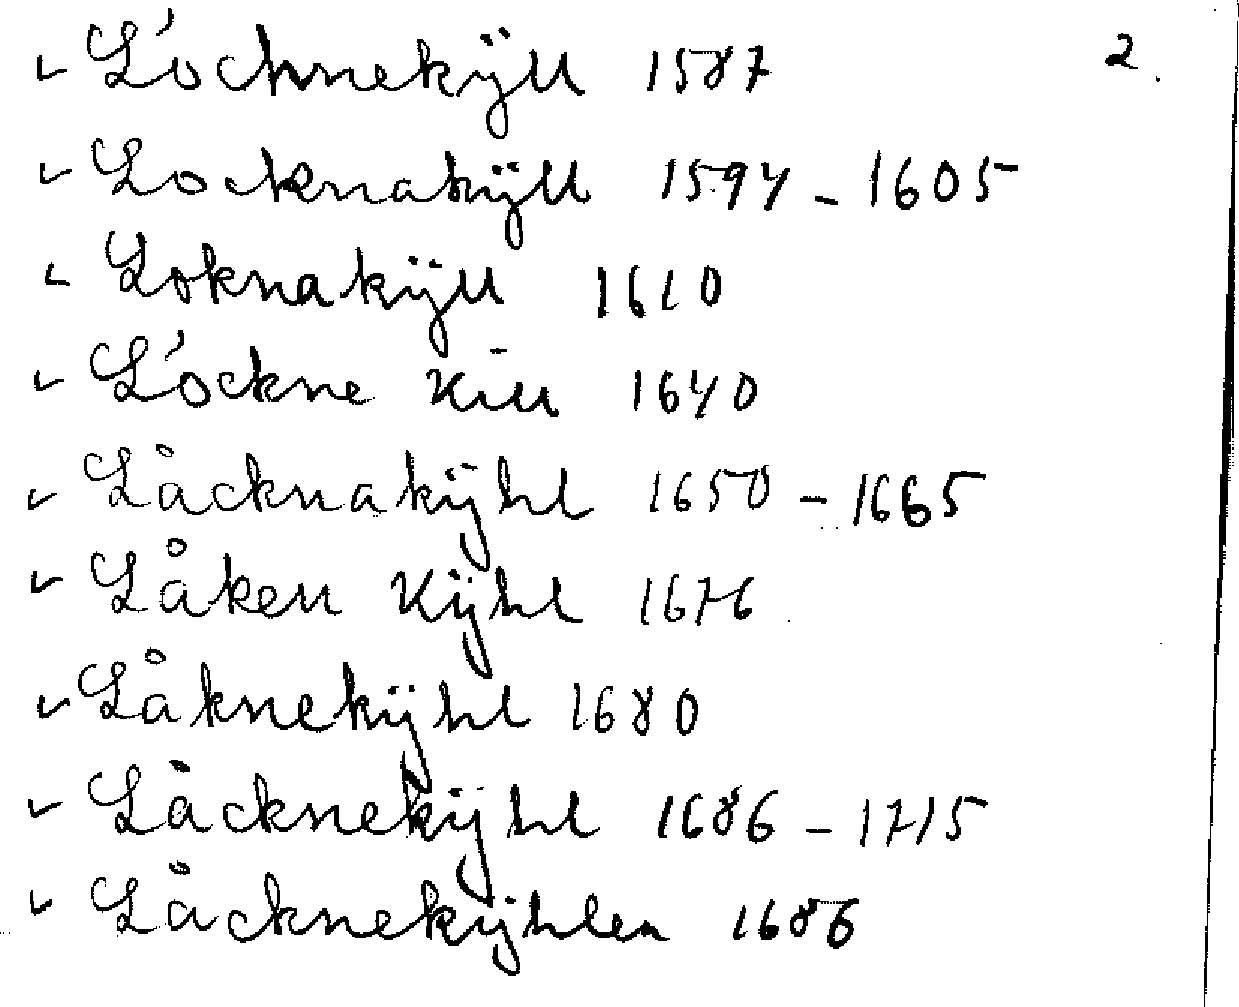 Lóchnekÿll 1587 2.
Locknakÿll 1594 - 1605
Loknakÿll 1610
Lóckne Kill 1640
Låcknakÿhl 1650 - 1665
Låken Kÿhl 1676
Låknekÿhl 1680
Låcknekÿhl 1686 - 1715
Låcknekÿhlen 1686